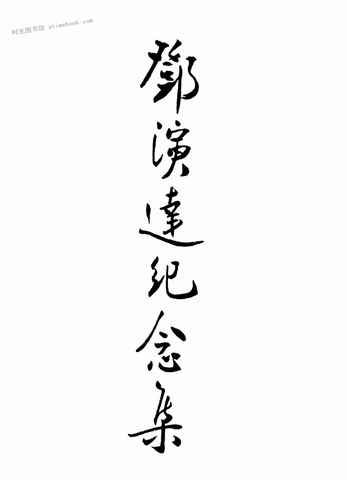 时光图书馆 stimebook.com
鄧演達纪念集